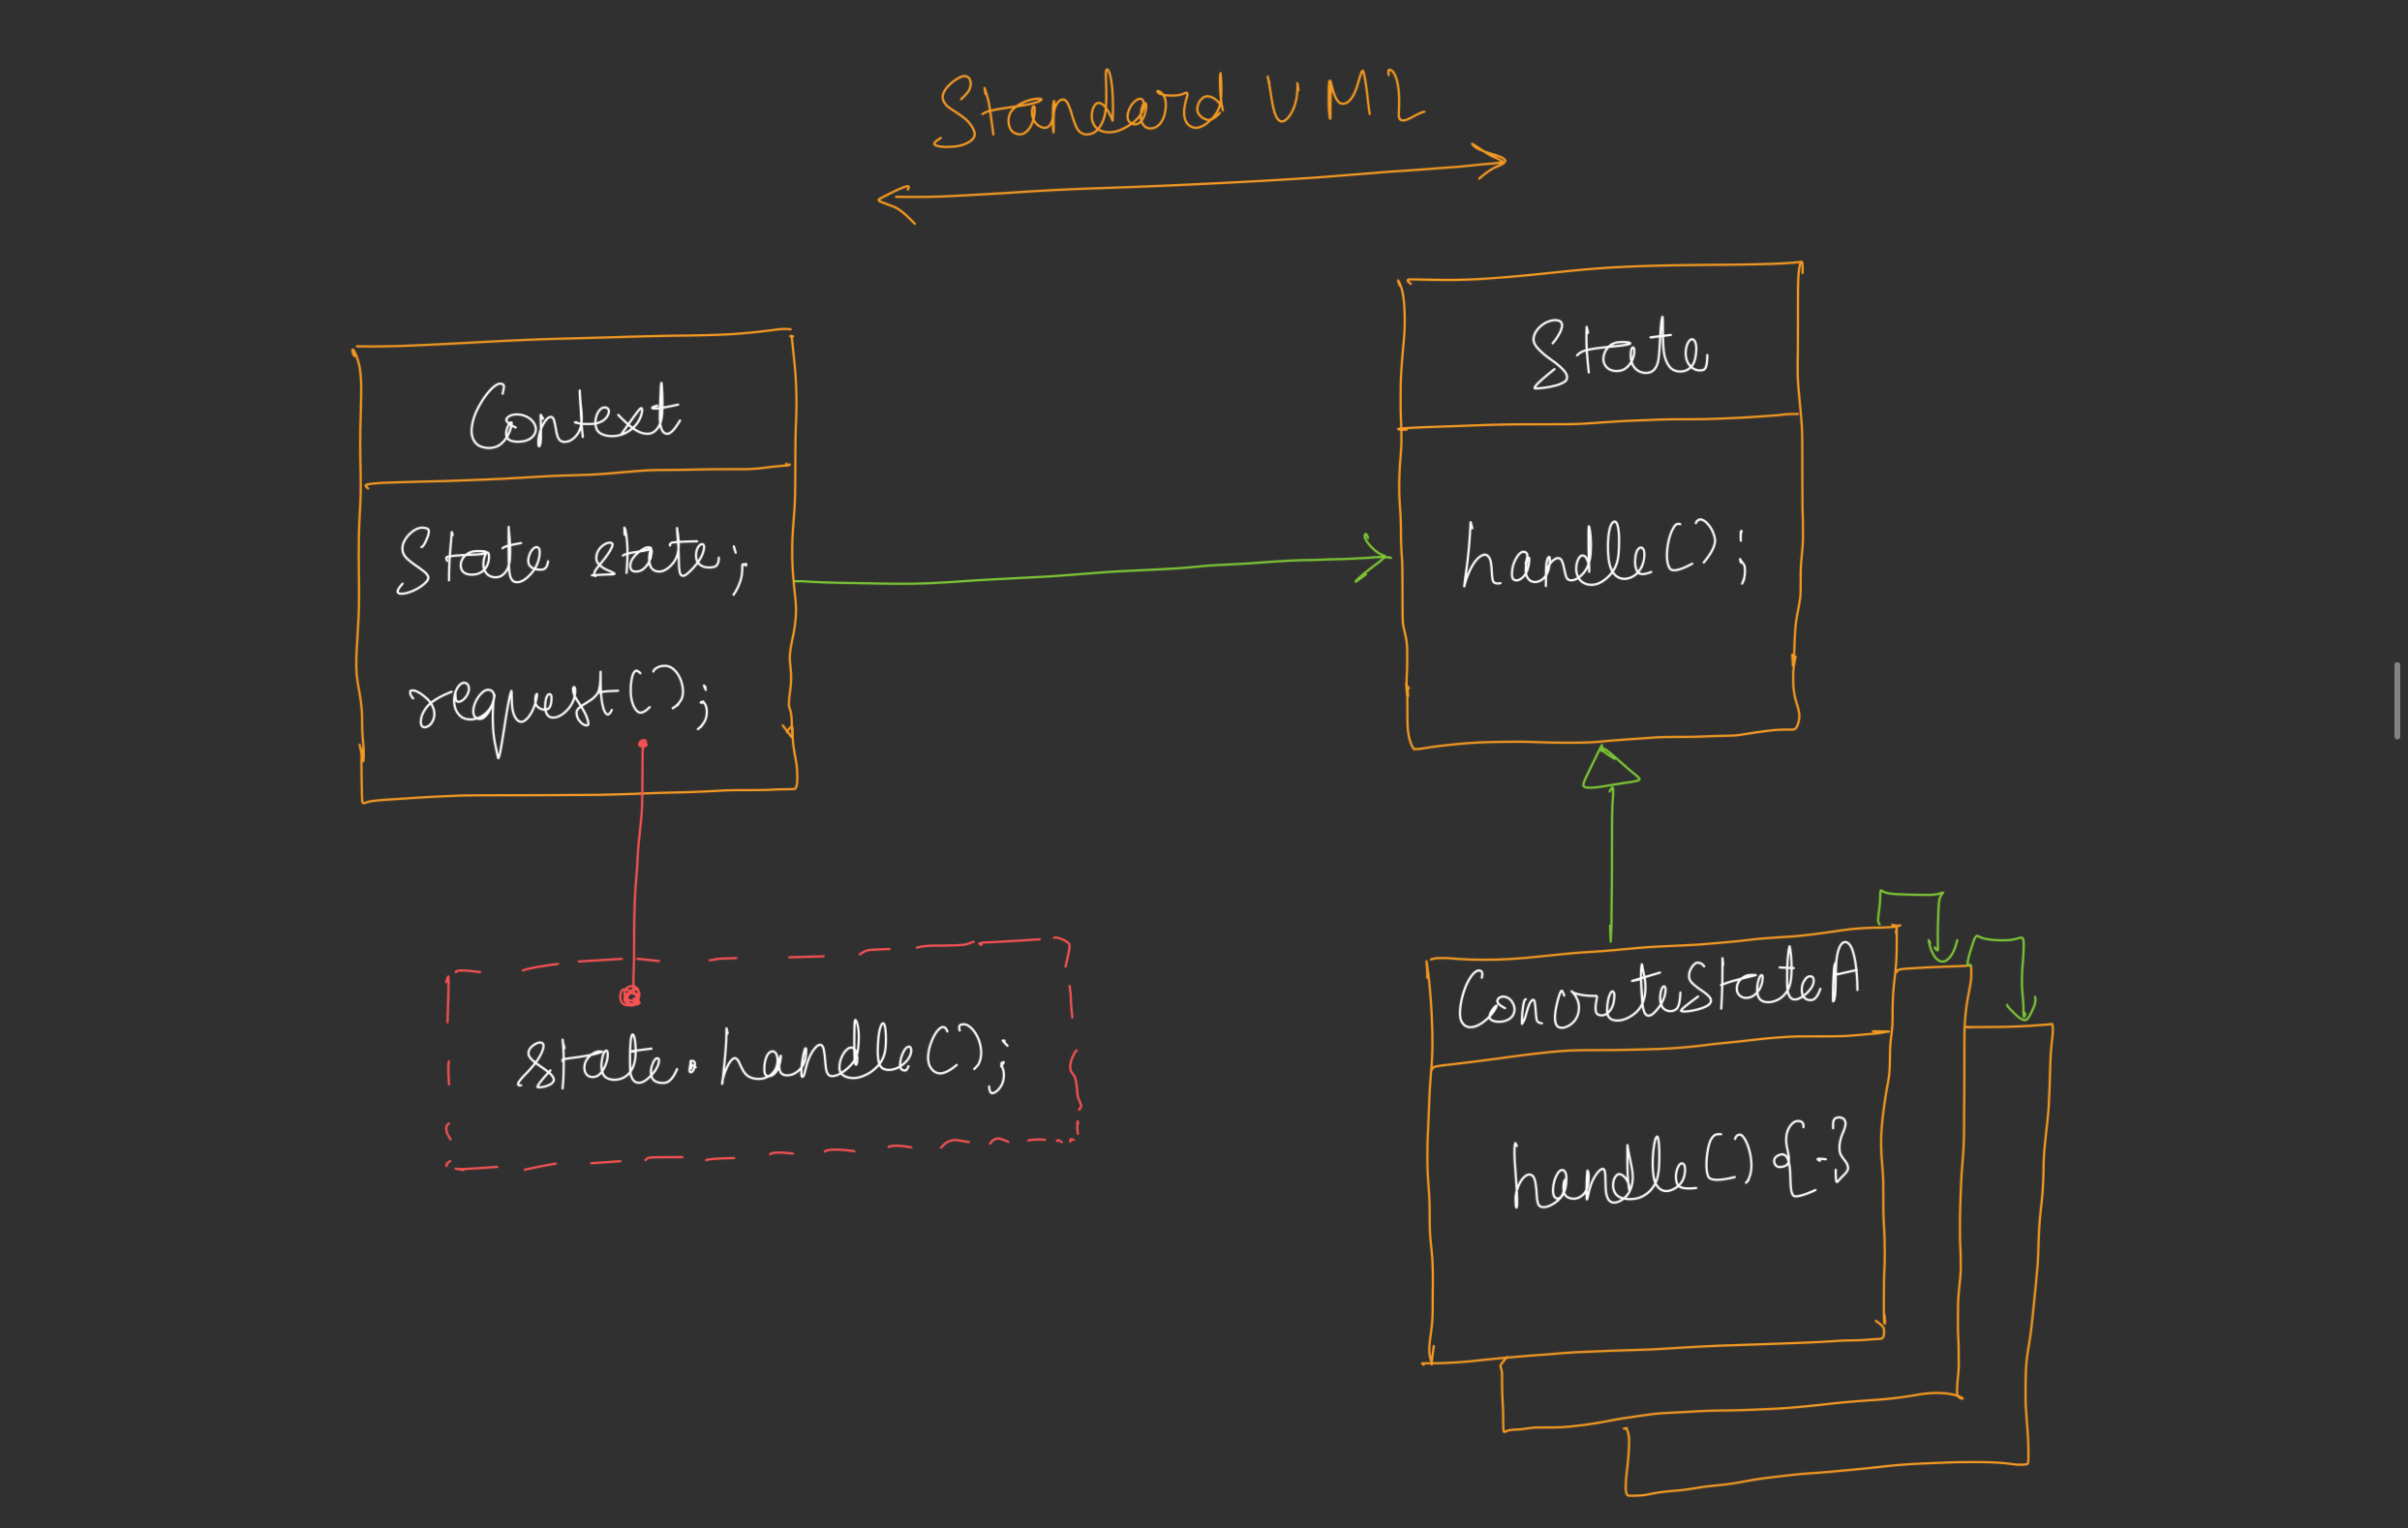 Standard UML
Context
State state;
request();
State
handle();
state.handle();
ConcreteStateA
handle() {-}